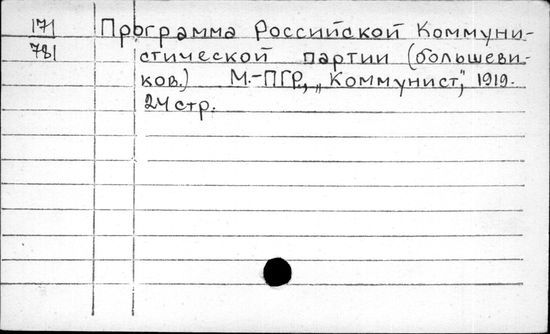 171 Программа Российской Коммуни-
781 стической партии (большеви-
ков.) М.-ПГР., „Коммунист", 1919.
24 стр.